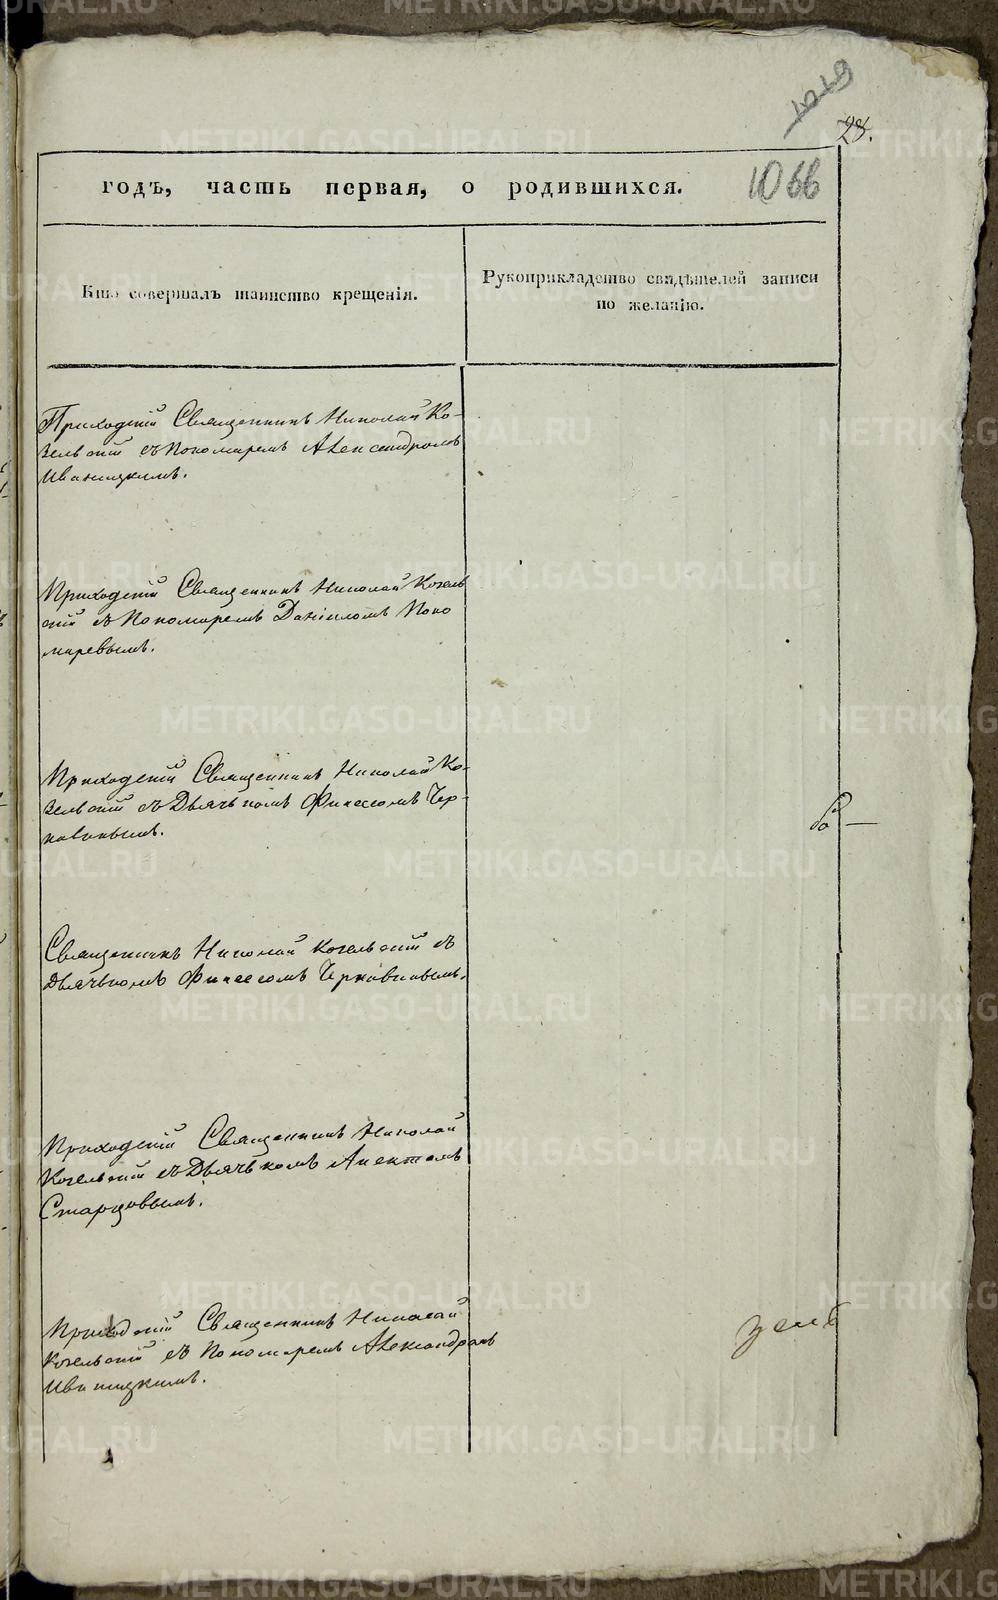 1019
28.
годъ, часть первая, о родившихся. 1066
Кто совершалъ таинство крещенія.
Рукоприкладство свидѣтелей записи
по желанію.
Приходскій Священникъ Николай Ко-
зельскій съ Пономаремъ Александромъ
Иваницкимъ.
Приходскій Священникъ Николай Козель
скій съ Пономаремъ Даніиломъ Поно
маревымъ.
Приходскій Священникъ Николай Ко-
зельскій съ Дьячькомъ Финеесомъ Чер-
навинымъ.
Священникъ Николай Козельскій съ
Дьячькомъ Финеесомъ Чернавинымъ.
Приходскій Священникъ Николай
Козельскій съ Дьячькомъ
Старцовымъ.
Приходскій Священникъ Николай
Козельскій съ Пономаремъ Александромъ
Иваницкимъ.
METRIKI.GASO-URAL.RU